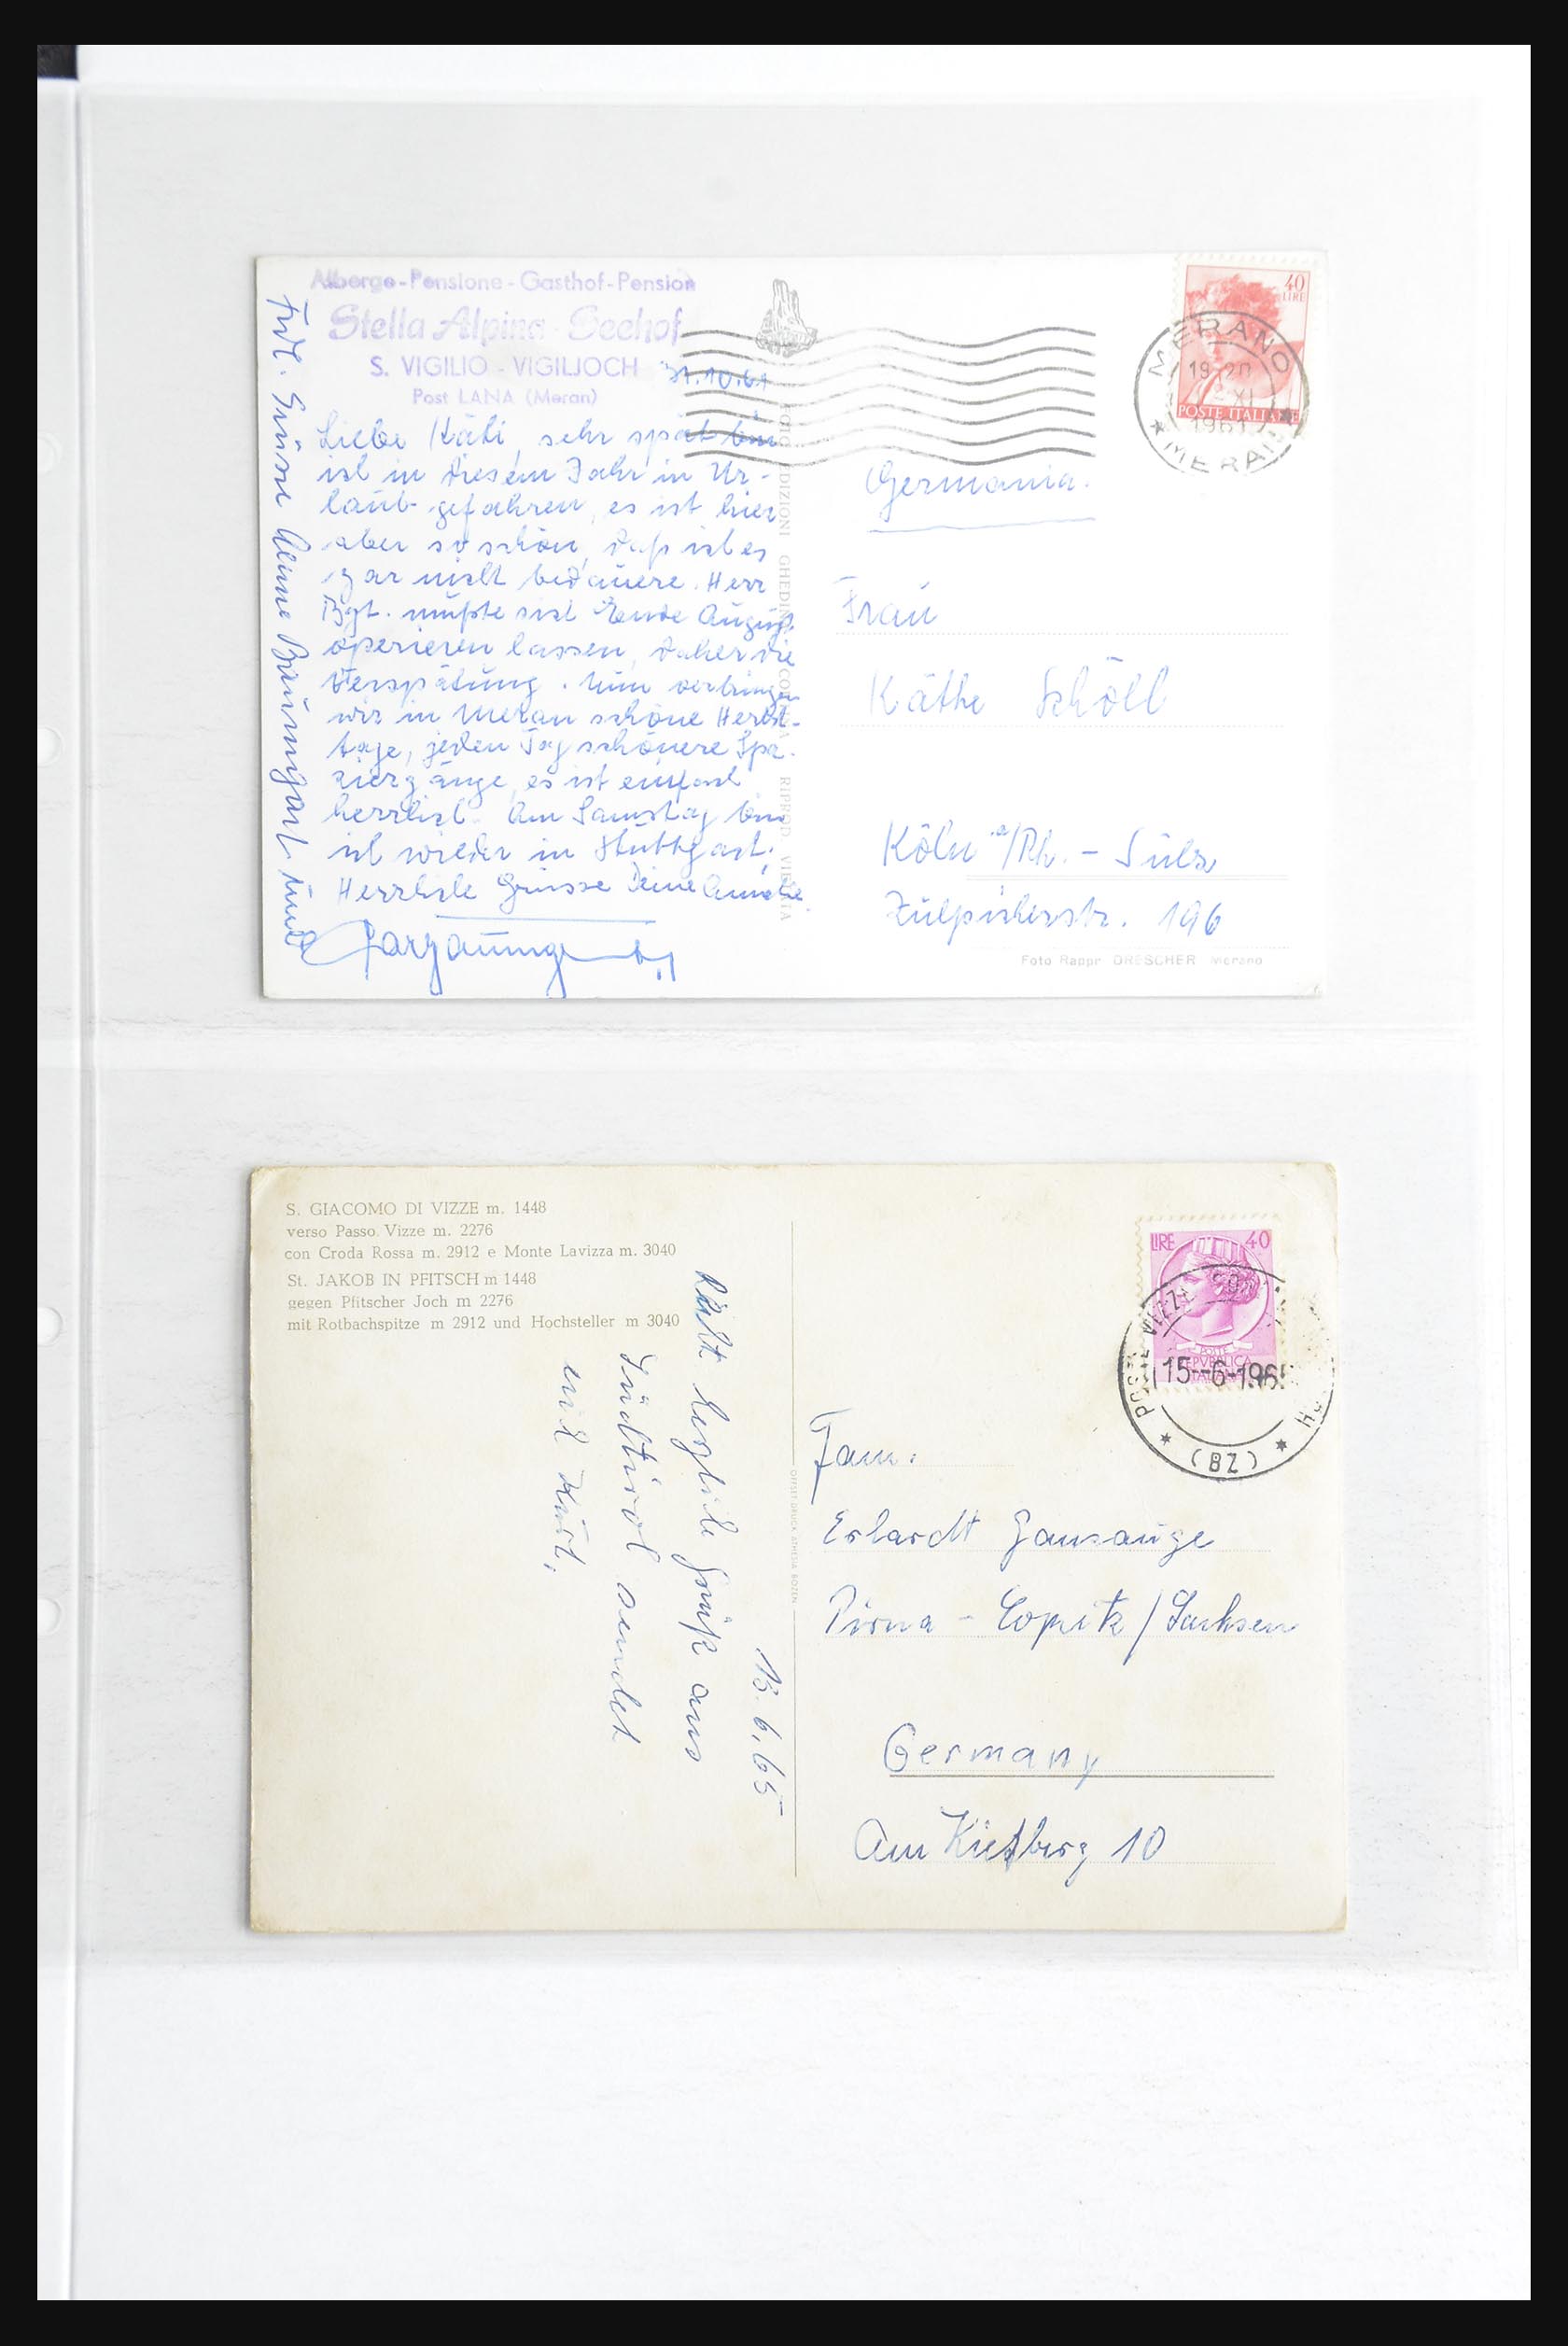 Albergo-Pensione-Gasthof-Pension
Stella Alpina - Seehof
S. VIGILIO - VIGILJOCH
Post LANA (Meran)
31.10.61
Liebe Käti, sehr spät bin
ich in diesem Jahr in Ur-
laub gefahren, es ist hier
aber so schön, daß ich es
gar nicht bedauere. Herr
Bgt. mußte sich Ende August
operieren lassen, daher die
Verspätung. Nun verbringen
wir in Meran schöne Herbst-
tage, jeden Tag schönere Spa-
ziergänge, es ist einfach
herrlich. Am Samstag bin
ich wieder in Stuttgart.
Herzliche Grüsse Deine
Frdl. Grüsse Baumgart und
FOTO EDIZIONI GHEDINA CORTINA RIPROD. VIETATA
40
LIRE
POSTE ITALIANE
MERANO
19-20
XI
1961
MERAN
Germania.
Frau
Käthe Schöll
Köln a/Rh. - Sülz
Zülpicherstr. 196
Foto Rappr DRESCHER Merano
S. GIACOMO DI VIZZE m. 1448
verso Passo Vizze m. 2276
con Croda Rossa m. 2912 e Monte Lavizza m. 3040
St. JAKOB IN PFITSCH m 1448
gegen Pfitscher Joch m 2276
mit Rotbachspitze m 2912 und Hochsteller m 3040
15.6.65
Recht herzliche Grüße aus
Südtirol sendet
euch Kurt.
OFFSET DRUCK ATHESIA BOZEN
LIRE 40
POSTE
REPVBBLICA
ITALIANA
15-6-196
(BZ)
Fam.
Erhardt Gansauge
Pirna - Copitz / Sachsen
Germany
Am Kiesberg 10